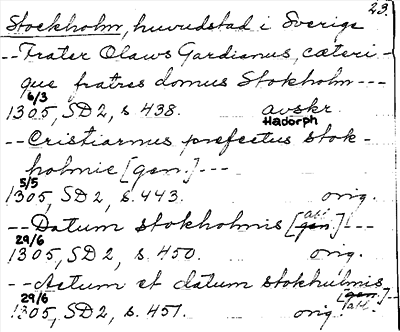 23.
Stockholm, huvudstad i Sverige
-- Frater Olaws Gardianus, cæteri-
que fratres domus Stokholm ---
6/3
1305, SD 2, s. 438. avskr.
Hadorph
-- Cristiarnus prefectus stok-
holmie [gen.] ---
5/5
1305, SD 2, s. 443. orig.
-- Datum stokholmis [gen.] abl ---
29/6
1305, SD 2, s. 450. orig.
-- Actum et datum stokhulmis
[gen.] abl --
29/6
1305, SD 2, s. 451. orig.